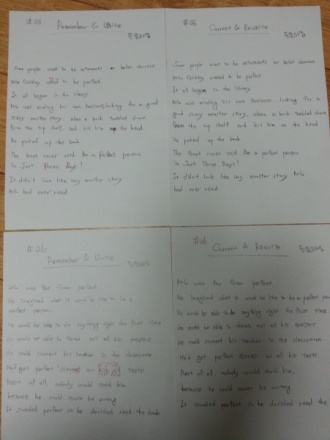 #25
Remember & Write
Some people want to be astronauts or ballet dancers
Milo Crinkley wanted to be perfect.
It all began in the library.
Milo was minding his own business, looking for a good
scary monster story, when a book tumbled down
from the top shelf and hit him on the head.
He picked up the book.
The book cover said Be a Perfect Person
In Just Three Days!
It didn't look like any monster story Milo
had ever read.
#25
Correct & Rewrite
Some people want to be astronauts or ballet dancers
Milo Crinkley wanted to be perfect.
It all began in the library.
Milo was minding his own business, looking for a good
scary monster story, when a book tumbled down
from the top shelf and hit him on the head.
He picked up the book.
The book cover said Be a perfect person
In Just Three Days!
It didn't look like any monster story Milo
had ever read.
#26
Remember & Write
Milo was far from perfect.
He imagined what it would be like to be a
perfect person.
He would be able to do anything right the first time
He would be able to
He could correct his teacher in the classroom
He'd get perfect scores on tests
Best of all, nobody could yell at him,
because he could never be wrong.
It sounded perfect so he decided read the book.
#26
Correct & Rewrite
Milo was far from perfect.
He imagined what it would be like to be a perfect
He would be able to do anything right the first time
He would be able to
He could correct his teacher in the classroom
He'd get perfect scores on all his tests
Best of all, nobody could
because he could never be wrong.
It sounded perfect so he decided read the